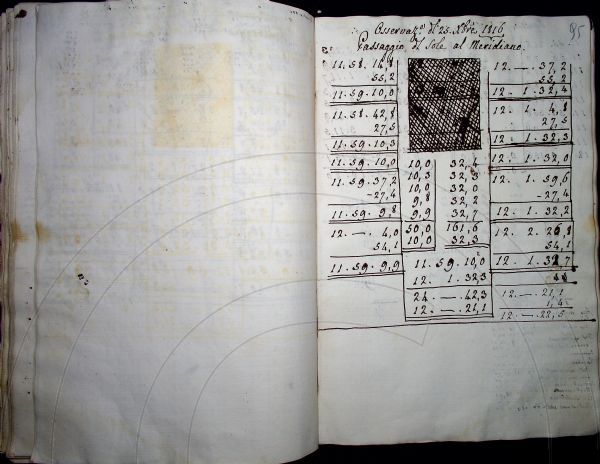 95
Osservaz.e di 25. Xbre. 1816
Passaggio del Sole al Meridiano.
11. 58. 14,8
55,2
11. 59. 10,0
11. 58. 42,8
27,5
11. 59. 10,3
11. 59. 10,0
11. 59. 37,2
-27,4
11. 59. 9,8
12. —. 4,0
54,1
11. 59. 9,9
10,0 32,4
10,3 32,3
10,0 32,0
9,8 32,2
9,9 32,7
50,0 161,6
10,0 32,3
11. 59. 10,0
12. 1. 32,3
24. —. 42,3
12. —. 21,1
12. —. 37,2
55,2
12. 1. 32,4
12. 1. 4,8
27,5
12. 1. 32,3
12. 1. 32,0
12. 1. 59,6
-27,4
12. 1. 32,2
12. 2. 26,8
54,1
12. 1. 32,7
12. —. 21,1
1,4
12. —. 22,5